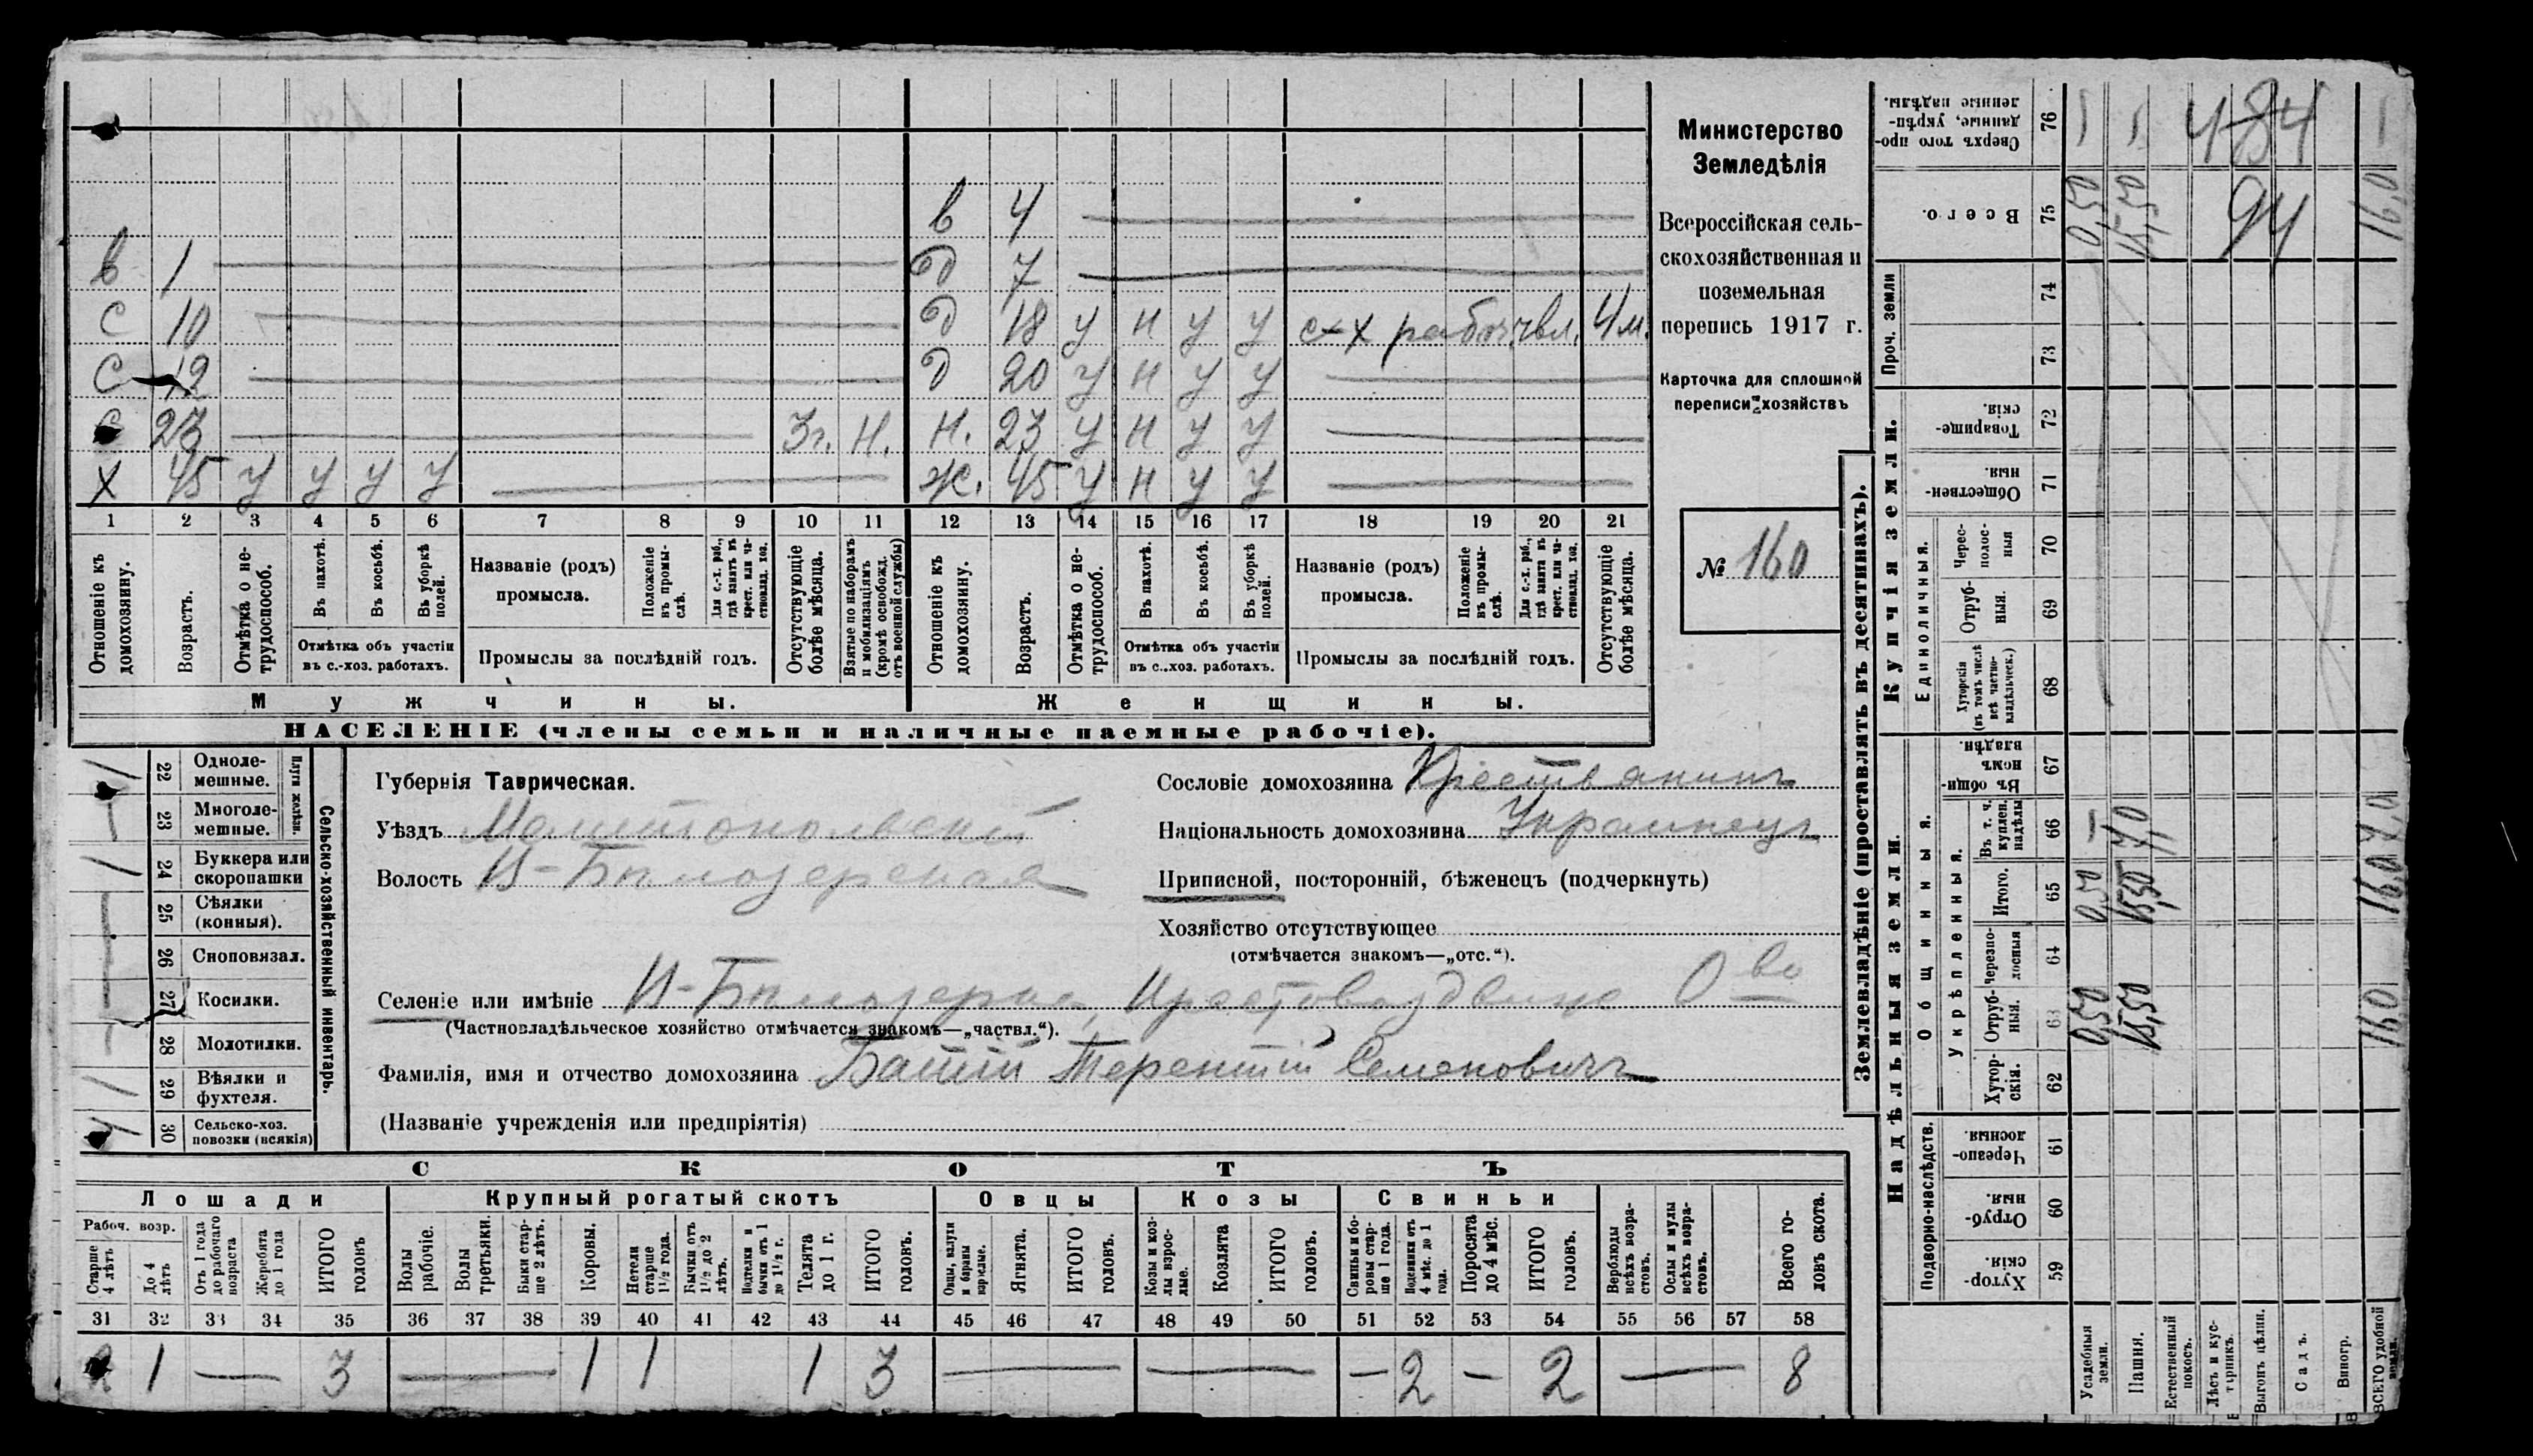 Министерство
Земледѣлія
Всероссійская сель-
скохозяйственная и
поземельная
перепись 1917 г.
Карточка для сплошной
переписи хозяйствъ
№ 160
в 4
в 1 д 7
с 10 д 18 у н у у с-х рабоч. 4 м.
с 12 д 20 у н у у
с 23 3 г. н. н. 23 у н у у
х 45 у у у у ж. 45 у н у у
1 2 3 4 5 6 7 8 9 10 11 12 13 14 15 16 17 18 19 20 21
Отношеніе къ домохозяину.
Возрастъ.
Отмѣтка о не-трудоспособ.
Въ пахотѣ.
Въ косьбѣ.
Въ уборкѣ полей.
Отмѣтка объ участіи въ с.-хоз. работахъ.
Названіе (родъ) промысла.
Положеніе въ промы-слѣ.
Для с.-х. раб., гдѣ занятъ въ крест. или ча-стновлад. хоз.
Промыслы за послѣдній годъ.
Отсутствующіе болѣе мѣсяца.
Взятые по наборамъ и мобилизаціямъ (кромѣ освобожд. отъ военной службы)
Отношеніе къ домохозяину.
Возрастъ.
Отмѣтка о не-трудоспособ.
Въ пахотѣ.
Въ косьбѣ.
Въ уборкѣ полей.
Отмѣтка объ участіи въ с.-хоз. работахъ.
Названіе (родъ) промысла.
Положеніе въ промы-слѣ.
Для с.-х. раб., гдѣ занята въ крест. или ча-стновлад. хоз.
Промыслы за послѣдній годъ.
Отсутствующіе болѣе мѣсяца.
Мужчины. Женщины.
НАСЕЛЕНІЕ (члены семьи и наличные наемные рабочіе).
Сельско-хозяйственный инвентарь.
Плуги желѣзн.
22 Одноле-мешные. 1
23 Многоле-мешные. —
24 Буккера или скоропашки 1
25 Сѣялки (конныя).
26 Сноповязал.
27 Косилки.
28 Молотилки.
29 Вѣялки и фухтеля. 1
30 Сельско-хоз. повозки (всякія)
Губернія Таврическая.
Уѣздъ Мелитопольскій
Волость В-Бѣлозерская
Селеніе или имѣніе В-Бѣлозерка, Крестовоздвиж О-во
(Частновладѣльческое хозяйство отмѣчается знакомъ—„частвл.“).
Фамилія, имя и отчество домохозяина Баштій Терентій Семеновичъ
(Названіе учрежденія или предпріятія)
Сословіе домохозяина Крестьянинъ
Національность домохозяина Украинецъ
Приписной, посторонній, бѣженецъ (подчеркнуть)
Хозяйство отсутствующее
(отмѣчается знакомъ—„отс.“).
СКОТЪ
Лошади Крупный рогатый скотъ Овцы Козы Свиньи
Рабоч. возр.
Старше 4 лѣтъ
До 4 лѣтъ
Отъ 1 года до рабочаго возраста
Жеребята до 1 года
ИТОГО головъ
Волы рабочіе.
Волы третьяки.
Быки стар-ше 2 лѣтъ.
Коровы.
Нетели старше 1½ года.
Бычки отъ 1½ до 2 лѣтъ.
Подтелки и бычки отъ 1 до 1½ г.
Телята до 1 г.
ИТОГО головъ.
Овцы, валухи и бараны взрослые.
Ягнята.
ИТОГО головъ.
Козы и коз-лы взрос-лые.
Козлята
ИТОГО головъ.
Свиньи и бо-ровы стар-ше 1 года.
Подсвинки отъ 4 мѣс. до 1 года.
Поросята до 4 мѣс.
ИТОГО головъ.
Верблюды всѣхъ возра-стовъ.
Ослы и мулы всѣхъ возра-стовъ.
Всего го-ловъ скота.
31 32 33 34 35 36 37 38 39 40 41 42 43 44 45 46 47 48 49 50 51 52 53 54 55 56 57 58
2 1 — 3 — 1 1 1 3 — — — 2 — 2 — 8
Землевладѣніе (проставлять въ десятинахъ).
Купчія земли.
Надѣльныя земли.
Единоличныя.
Общинныя.
Укрѣпленныя.
Подворно-наслѣдств.
Проч. земли
76 Сверхъ того про-данные, укрѣп-ленные надѣлы.
75 Всего. 0,50 15,50 94 16,0
74
73
72 Товарище-скія.
71 Обществен-ныя.
70 Черес-полос-ныя
69 Отруб-ныя.
68 Хуторскія (въ томъ числѣ всѣ частно-владѣльческ.)
67 Въ общи-номъ владѣн.
66 Въ т. ч. куплен. надѣлы — 7,0 7,0
65 Итого. 0,50 15,50 16,0
64 Черезпо-лосныя
63 Отруб-ныя. 0,50 15,50 16,0
62 Хутор-скія.
61 Черезпо-лосныя.
60 Отруб-ныя.
59 Хутор-скія.
Усадебныя земли.
Пашня.
Естественный покосъ.
Лѣсъ и кус-тарникъ.
Выгонъ цѣлин.
Садъ.
Виногр.
ВСЕГО удобной земли.